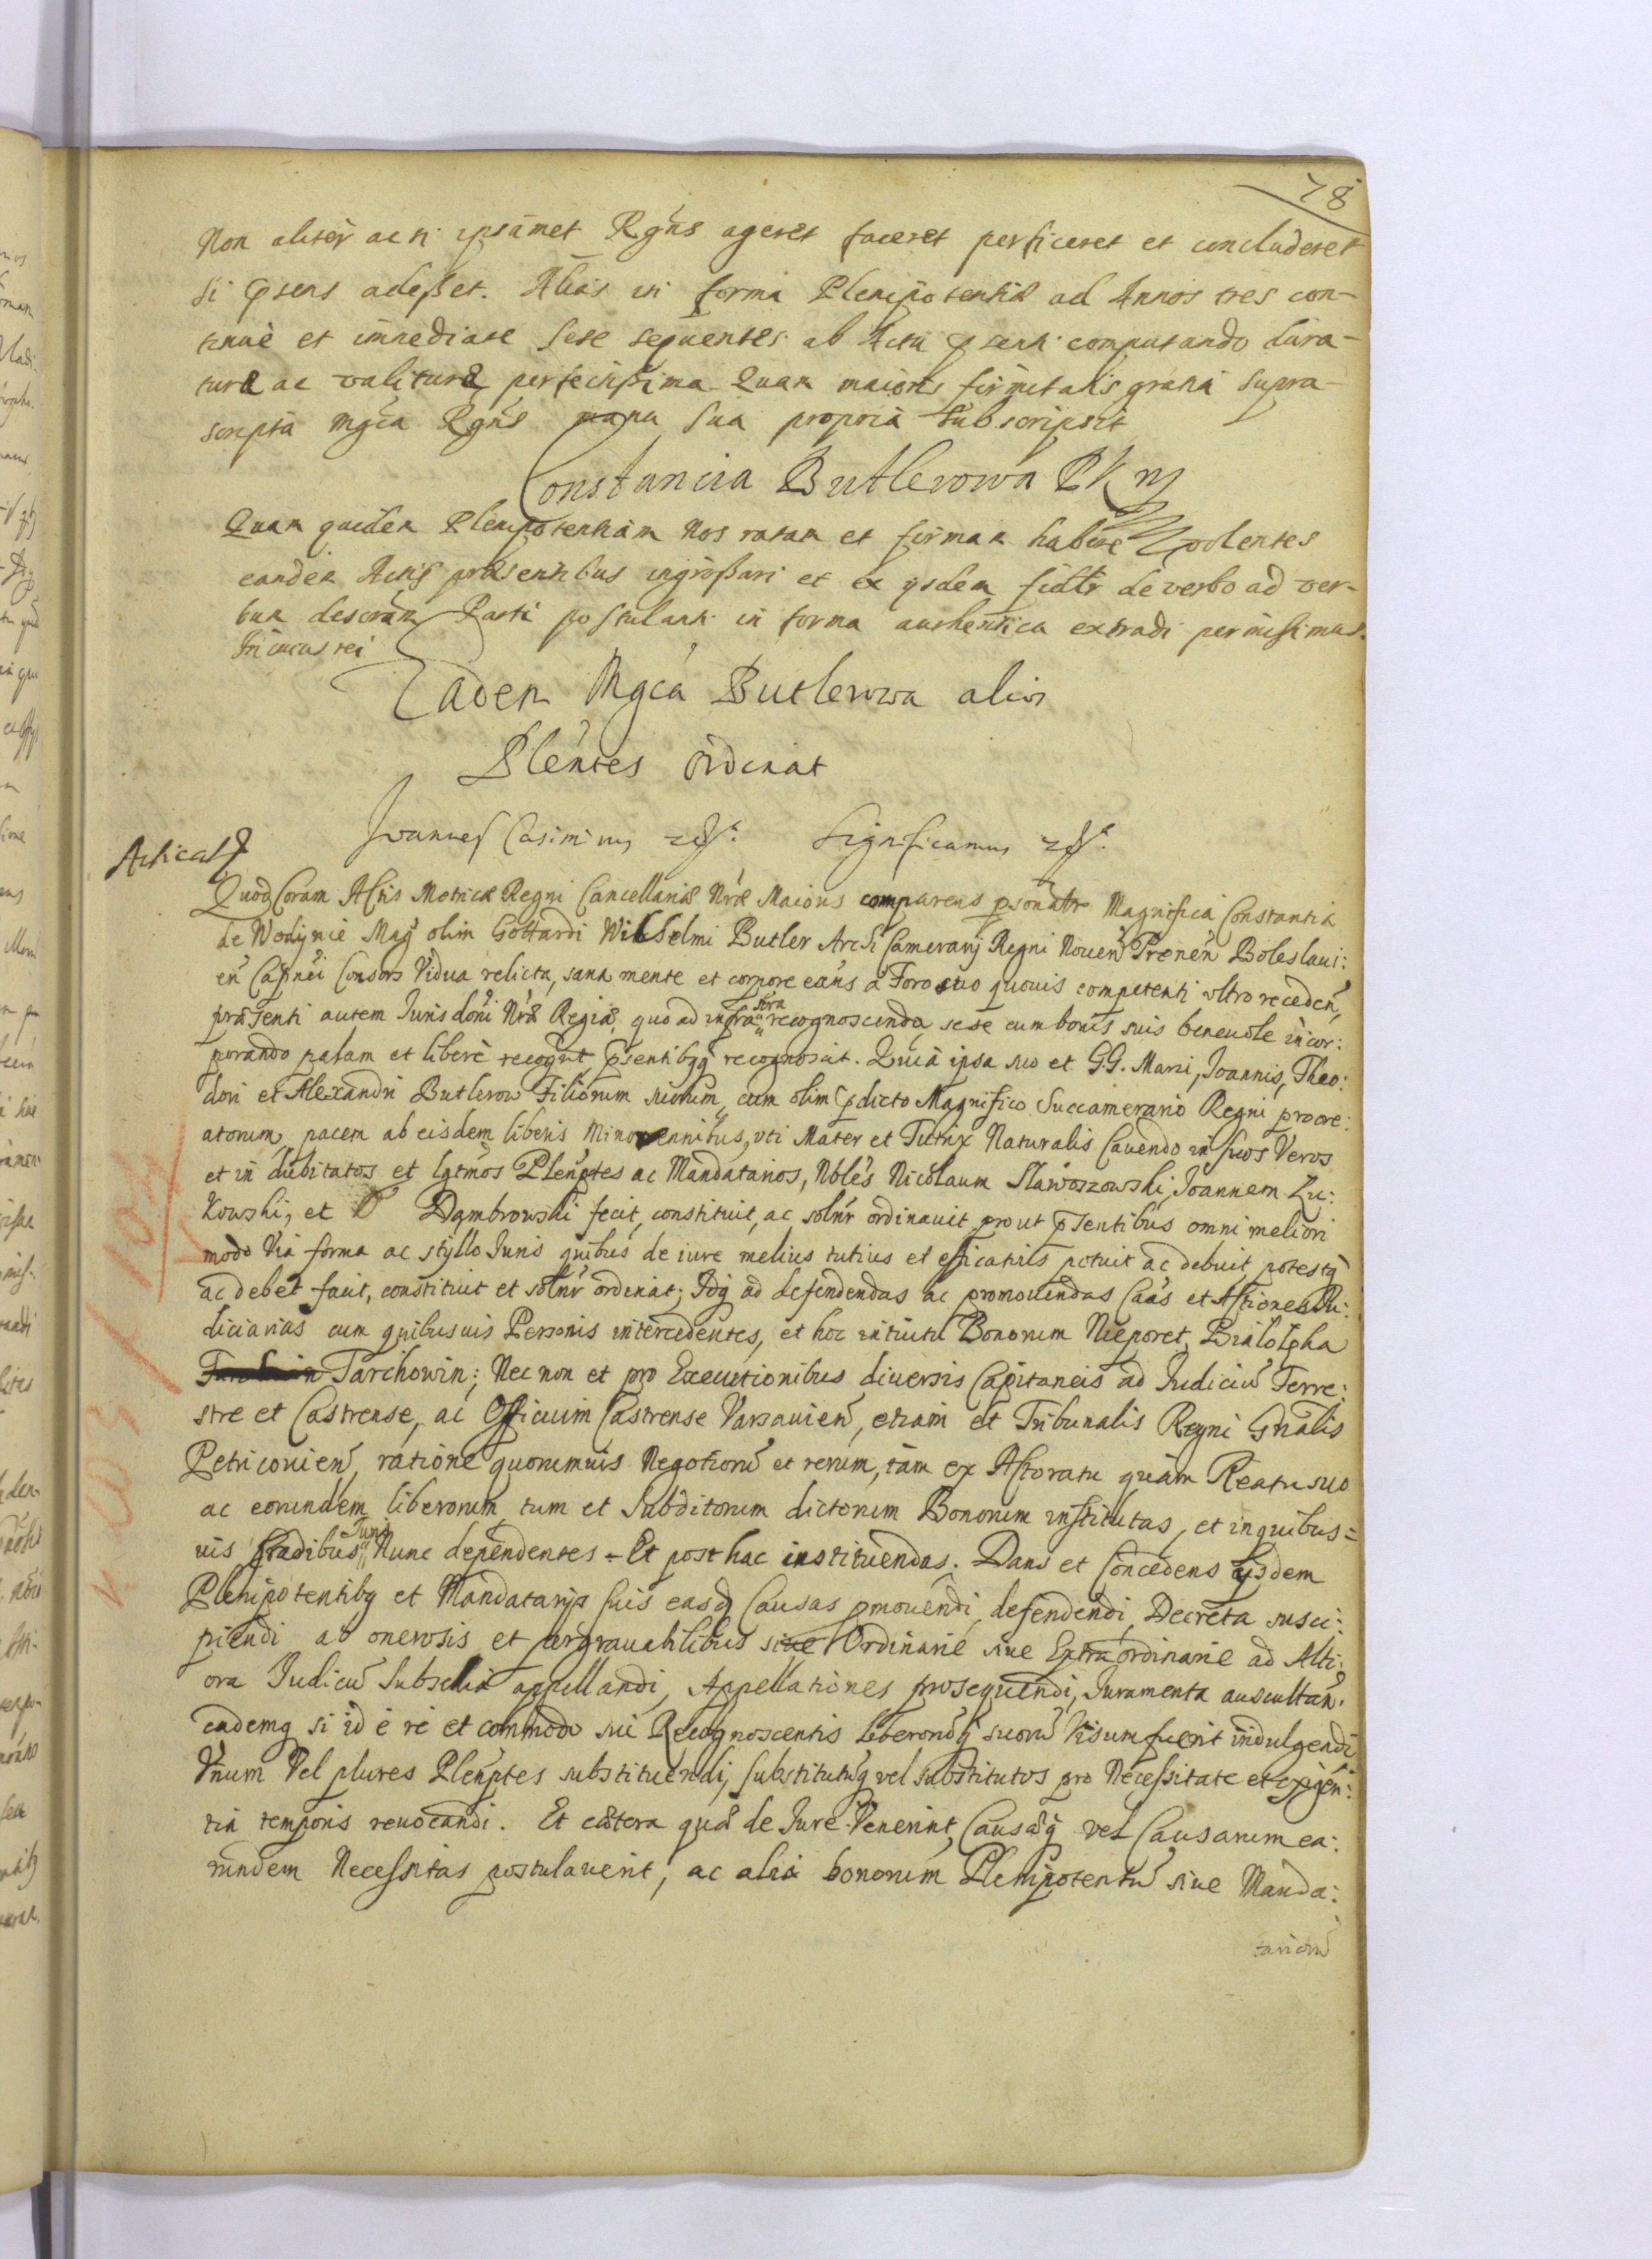 78
Non aliter ac si ipsamet Rgńs ageret faceret perficeret et concluderet
si p̄sens adesset. Alias in forma Plenipotentiæ ad Annos tres con-
tinuè et immediate sese sequentes ab Actu p̄senti computando dura-
turæ ac valituræ perfectissima. Quam maioris firmitatis gratia supra-
scripta Mgca Rgńs manu sua propria subscripsit
Constancia Butlerowa PKm
Quam quidem Plenipotentiam Nos ratam et firmam habere volentes
eandem Actis præsentibus ingrossari et ex ijsdem fidlr de verbo ad ver-
bum descriptam Parti postulanti in forma authentica extradi permisimus.
In cuius rei
Eadem Mgca Butlerowa alios
Pleńtes ordinat
Joannes Casimirus Significamus
Quod Coram Actis Metricæ Regni Cancellariæ Nræ Maioris comparens psonaltr Magnifica Constantia
de Wodÿnie Mag olim Gottardi Wilhelmi Butler Archi Camerarij Regni Noueń Preneń Boleslaui:
eń Capnei Consors Vidua relicta, sana mente et corpore eans à Foro suo quouis competenti vltro recedeń,
præsenti autem Jurisdoni Nræ Regiæ, quo ad infra recognoscenda sese cum bonis suis beneuole incor:
porando palam et liberè recogńt p̄sentibqq recognoscit. Quia ipsa suo et G.G. Marci, Joannis, Theo:
dori et Alexandri Butlerow Filiorum suorum, cum olim p̄dicto Magnifico Succamerario Regni procre:
atorum, pacem ab eisdem liberis Minorennibus, vti Mater et Tutrix Naturalis Cauendo in suos Veros
et in dubitatos et lgtmos Plenptes ac Mandatarios, Nbles Nicolaum Sławoszowski, Joannem Zu:
kowski, et D Dąmbrowski fecit, constituit, ac solnr ordinauit prout p̄sentibus omni meliori
modo Via forma ac styllo Juris quibus de iure melius tutius et efficatius potuit ac debuit, potestq
ac debet facit, constituit et solnr ordinat; Idq ad defendendas ac promouendas Caas et Actiones Ju:
diciarias cum quibusuis Personis intercedentes, et hoc intuitu Bonorum Nieporet, Białołęka
Tarchowin; Nec non et pro Executionibus diuersis Capitaneis ad Judiciu Terre:
stre et Castrense, ac Officium Castrense Varsauień, etiam et Tribunalis Regni Gnalis
Petricouień, ratione quorumuis Negotioru et rerum, tam ex Actoratu quàm Reatu suo
ac eorundem liberorum, tum et Subditorum dictorum Bonorum institutas, et in quibus=
uis gradibus Juris Nunc dependentes - Et post hac instituendas. Dans et Concedens Ijsdem
Plenipotentibq et Mandatarijs suis easdq Causas pmouendi, defendendi, Decreta susci:
piendi ab onerosis et aggrauabilibus siue Ordinarie siue Extraordinarie ad Alti:
ora Judicu Subsellia appellandi, Appellationes prosequendi, Juramenta auscultań.
eademq si id è re et commodo sui Recognoscentis liberorq suoru Visum fuerit indulgendi
Vnum Vel plures Plenptes substituendi, substitutuq vel substitutos pro Necessitate et exigen:
tia temporis reuocandi. Et cætera quæ de Jure Venerint, Causæq vel Causarum ea:
rundem Necessitas postulauerit, ac alia bonorum Plenipotentu siue Manda:
tarioru